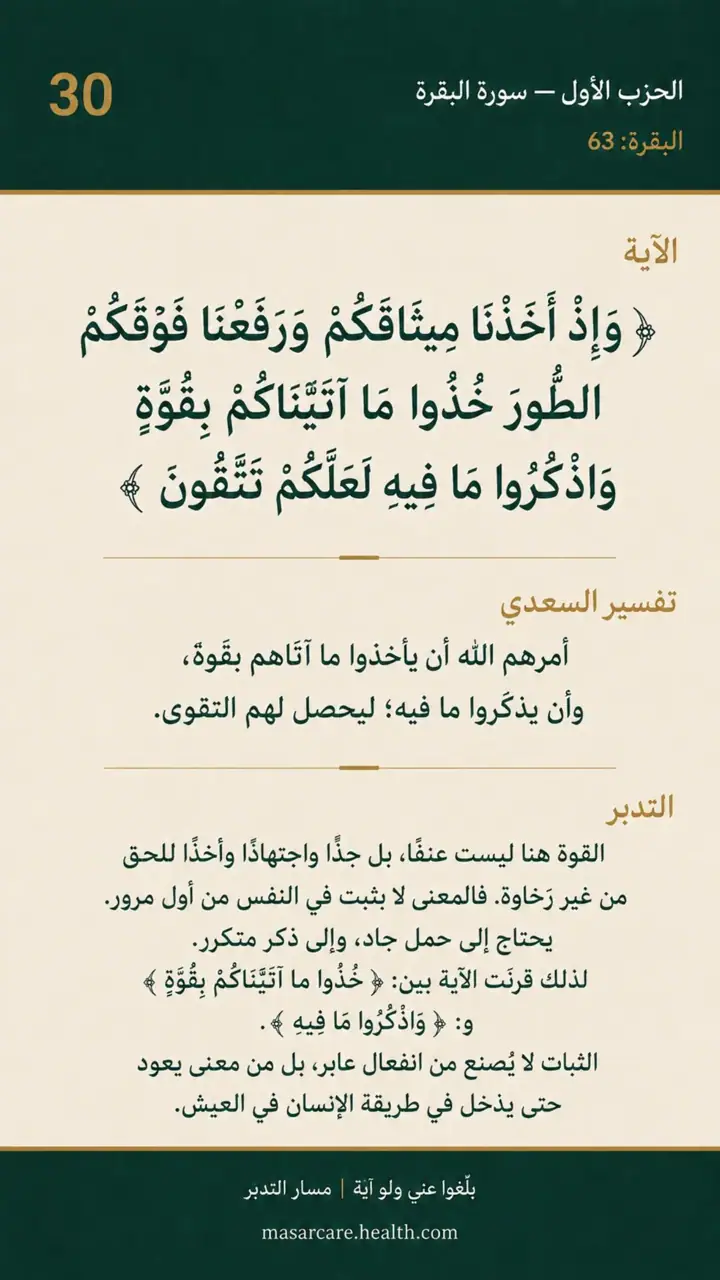 الحزب الأول — سورة البقرة
30
البقرة: 63
الآية
﴿ وَإِذْ أَخَذْنَا مِيثَاقَكُمْ وَرَفَعْنَا فَوْقَكُمْ
الطُّورَ خُذُوا مَا آتَيَّنَاكُمْ بِقُوَّةٍ
وَاذْكُرُوا مَا فِيهِ لَعَلَّكُمْ تَتَّقُونَ ﴾
تفسير السعدي
أمرهم الله أن يأخذوا ما آتَاهم بقَوةَ،
وأن يذكَروا ما فيه؛ ليحصل لهم التقوى.
التدبر
القوة هنا ليست عنفًا، بل جذًّا واجتهاذًا وأخذًا للحق
من غير رَخاوة. فالمعنى لا بثبت في النفس من أول مرور.
يحتاج إلى حمل جاد، وإلى ذكر متكرر.
لذلك قرنَت الآية بين: ﴿ خُذُوا ما آتَيَّنَاكُمْ بِقُوَّةٍ ﴾
و: ﴿ وَاذْكُرُوا مَا فِيهِ ﴾.
الثبات لا يُصنع من انفعال عابر، بل من معنى يعود
حتى يذخل في طريقة الإنسان في العيش.
بلّغوا عني ولو آية | مسار التدبر
masarcare.health.com